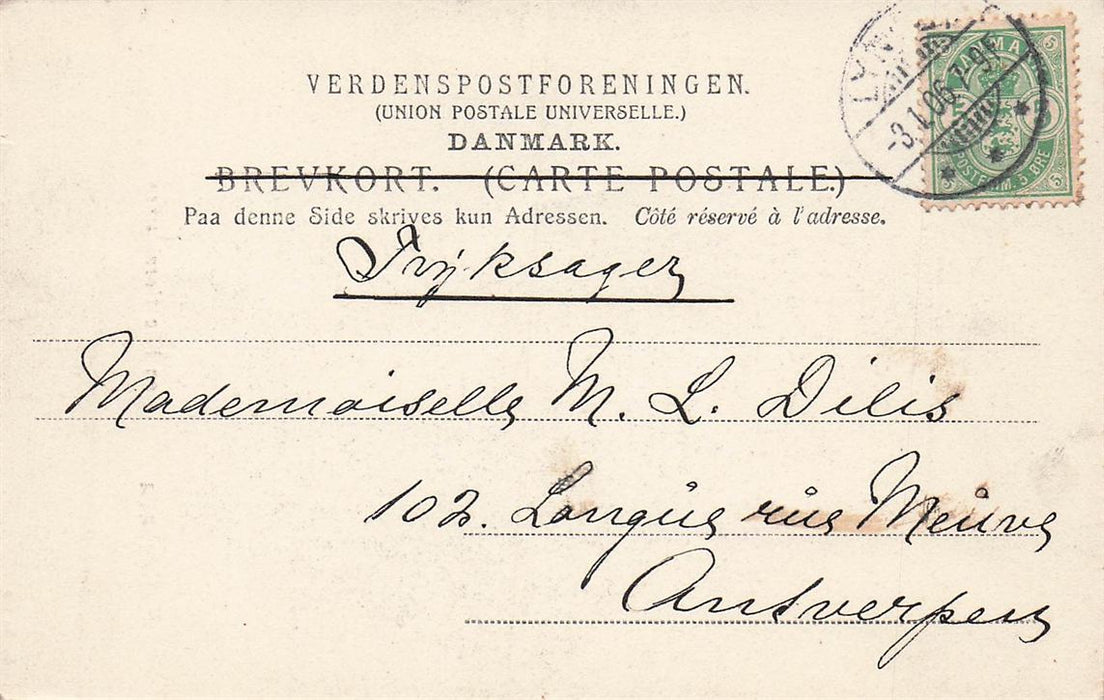 VERDENSPOSTFORENINGEN.
(UNION POSTALE UNIVERSELLE.)
DANMARK.
BREVKORT. (CARTE POSTALE.)
Paa denne Side skrives kun Adressen. Côté réservé à l'adresse.
Tryksager
Mademoiselle M. L. Dilis
102. Longue rue Neuve
Antverpen
LYN
-3.1.06. 7-9F
DANMARK
5 5
POSTFRIM. 5 ØRE
5 5